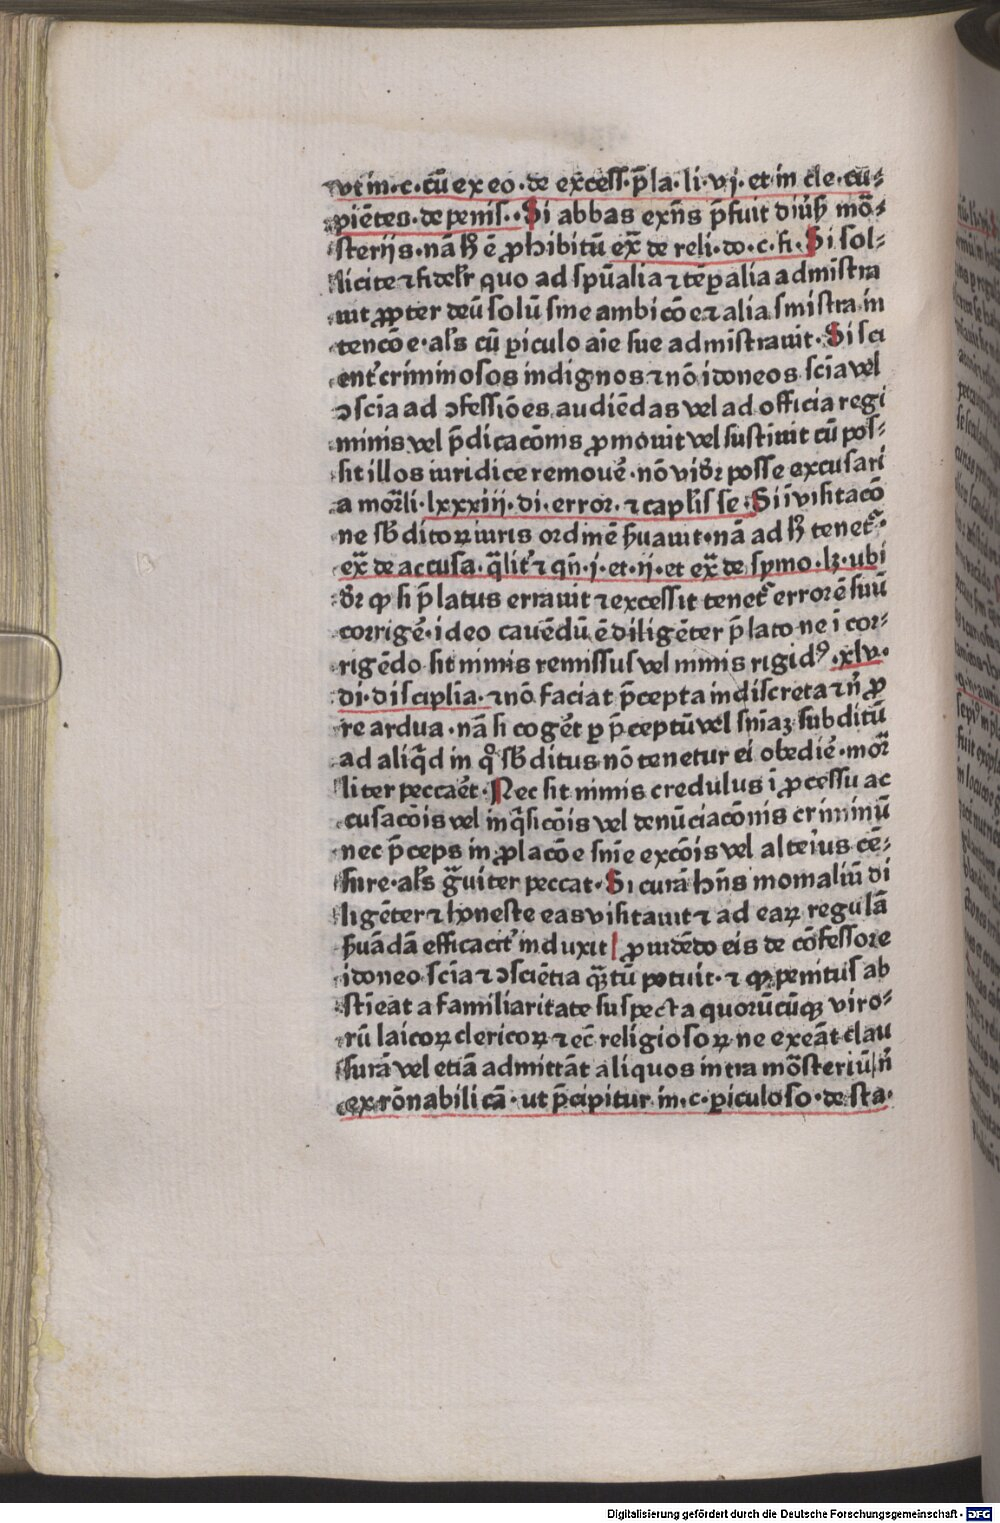 vt in·c·cū ex eo·de excess·p̄la·li·vj·et in cle·cu⸗
piētes·de penis·Si abbas exn̄s p̄fuit diūsꝭ mo᷒⸗
sterijs·nā hͦ ē ꝓhibitū ex̄ de reli·do·c·fi·Si sol⸗
licite ⁊ fidelr̄ quo ad spūalia ⁊ tēꝑalia admīstra
uit ꝓpter deū solū sine ambicōe ⁊ alia sinistra in
tencōe·al's cū ꝑiculo aīe sue admīstrauit·Si sci
ent' criminosos indignos ⁊ nō idoneos sciā vel
ↄsciā ad ↄfessiōes audiēdas vel ad officia regi
minis vel p̄dicacōnis ꝓmouit vel sustinuit cū pos⸗
sit illos iuridice remouē·nō vidr̄ posse excusari
a mor̄li·lxxxiij·di·error·⁊ caplīs se·Si ī visitacō
ne sb̄ditoꝝ iuris ordinē s̄uauit·nā ad hͦ tenet᷒·
ex̄ de accusa·q̄lit' ⁊ qn̄·j·et·ij·et ex̄ de symo·lꝫ·ubi
dr̄ ꝙ si p̄latus errauit ⁊ excessit tenet᷒ errorē suū
corrigē·ideo cauēdū ē diligēter p̄lato ne ī cor⸗
rigēdo sit nimis remissus vel nimis rigidꝰ·xlv·
di·disciplīa·⁊ nō faciat p̄cepta indiscreta ⁊ n̄ ꝓ
re ardua·nā si cogēt ꝑ p̄ceptū vel sniāꝫ subditū
ad aliq̄d in qͦ sb̄ditus nō tenetur ei obediē·mor̄
liter peccaēt·Nec sit nimis credulus ī ꝓcessu ac
cusacōis vel inq̄sicōis vel denūciacōnis criminū
nec p̄ceps in ꝓlacōe snīe excōis vel alteiꝰus cē⸗
sure·al's gͣuiter peccat·Si curā hn̄s monialiū di
ligēter ⁊ honeste eas visitauit ⁊ ad eaꝝ regulā
s̄uādā efficacit' induxit ꝓuidēdo eis de cōfessore
idoneo sciā ⁊ ↄsciētia qͣꝫtū potuit·⁊ ꝙ penitus ab
stīeāt a familiaritate suspecta quorūcūqꝫ viro⸗
rū laicoꝝ clericoꝝ ⁊ ec̄ religiosoꝝ ne exeāt clau
surā vel etiā admittāt aliquos intra mōsteriū n̄
ex rōnabili cā·ut p̄cipitur in·c·ꝑiculoso·de sta·
Digitalisierung gefördert durch die Deutsche Forschungsgemeinschaft - DFG